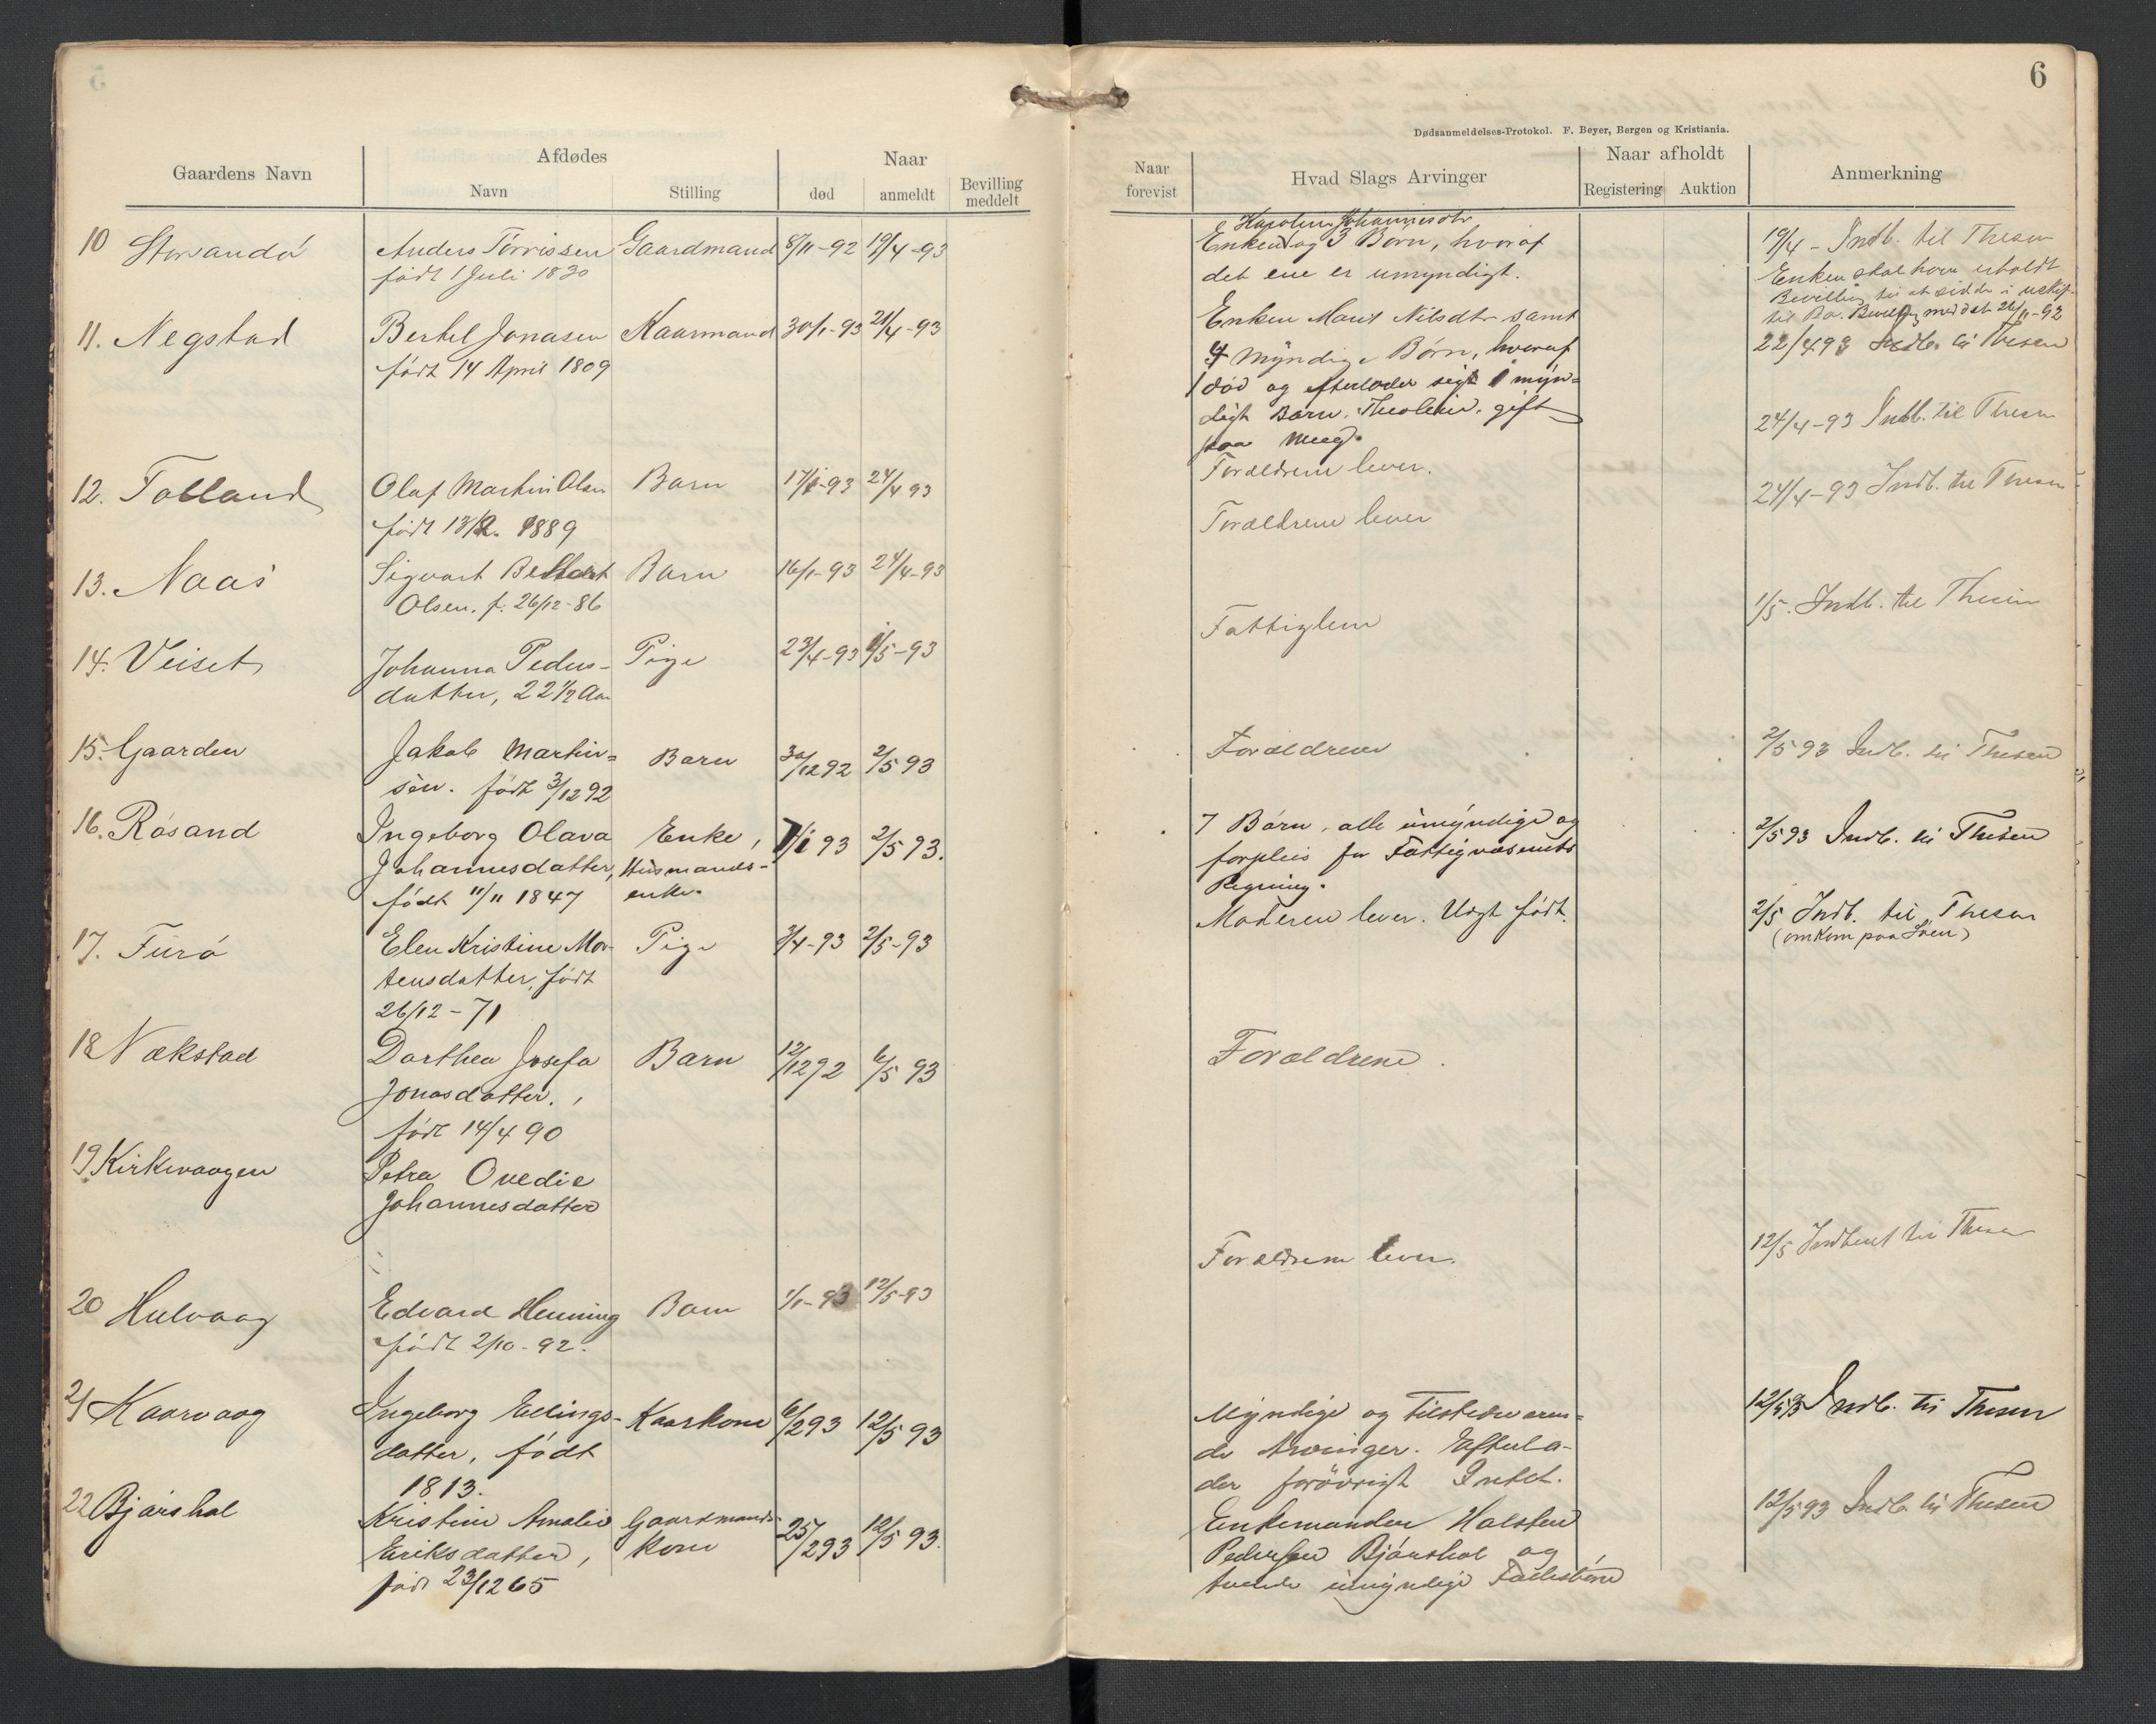 6
Dødsanmeldelses-Protokol. F. Beyer, Bergen og Kristiania.
Gaardens Navn
Afdødes
Navn
Stilling
Naar
død
anmeldt
Bevilling
meddelt
Naar
forevist
Hvad Slags Arvinger
Naar afholdt
Registering
Auktion
Anmerkning
10 Storsandö
Anders Törrissen
født 1 Juli 1830
Gaardmand
8/11-92
19/4-93
Johannesdtr
Enken og 3 Børn, hvoraf
det ene er umyndigt.
19/4 - Indb. til Thesen
Enken skal have erholdt
Bevilling til at sidde i uskif-
tet Bo. meddelt 26/11-92
11. Negstad
Bertel Jonasen
født 14 April 1809
Kaarmand
30/1-93
21/4-93
Enken Marit Nilsdtr samt
4 myndige Børn, hvoraf
1 død og efterlader sig 1 myn=
digt Barn, gift
paa
22/4 93 Indb. til Thesen
12. Tolland
Olaf Martin Olsen
født 13/12. 1889
Barn
17/1-93
24/4 93
Forældrene lever.
24/4-93 Indb. til Thesen
13. Naas
Sigvart
Olsen, f. 26/12-86
Barn
16/1-93
24/4-93
Forældrene lever
24/4-93 Indb. til Thesen
14. Veiset
Johanna Peders-
datter, 22 1/2 Aar
Pige
23/4-93
1/5-93
Fattiglem
1/5. Indb. til Thesen
15. Gaarden
Jakob Martin=
sen. født 3/12 92
Barn
30/12 92
2/5 93
Forældrene
2/5 93 Indb. til Thesen
16. Røsand
Ingeborg Olava
Johannesdatter,
født 11/11 1847
Enke,
Husmands-
enke.
7/1 93
2/5 93.
7 Børn, alle umyndige og
forpleies for Fattigvæsenets
Regning.
2/5 93 Indb. til Thesen
17. Furö
Elen Kristine Mor-
tensdatter, født
26/12-71
Pige
3/4-93
2/5-93
Moderen lever. Uægt født.
2/5 Indb. til Thesen
(omkom paa Søen)
18 Nækstad
Dorthea Josefa
Jonasdatter,
født 14/4 90
Barn
12/12 92
6/5 93
Forældrene.
19 Kirkevaagen
Petra Ovedie
Johannesdatter
20 Hulvaag
Edvard Henning
født 2/10-92.
Barn
1/1-93
12/5-93
Forældrene lever.
12/5 Indberet til Thesen
21 Kaarvaag
Ingeborg Ellings-
datter, født
1813.
Kaarkone
6/2 93
12/5 93
Myndige og tilstedeværen=
de Arvinger. Efterla-
der forövrigt Intet.
12/5 93 Indb. til Thesen
22 Bjørshol
Kristine Amalie
Eriksdatter,
født 23/12 65
Gaardmands-
kone
25/2 93
12/5 93.
Enkemanden Halsten
Pedersen Bjørshol og
tvende umyndige Fællesbørn
12/5 93 Indb. til Thesen